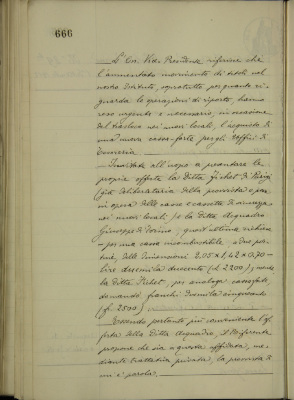 666
L'On. Vice Presidente riferisce che
l'aumentato movimento di titoli nel
nostro Istituto, sopratutto per quanto ri-
guarda le operazioni di riporto, hanno
reso urgente e necessario, in occasione
del trasloco nei nuovi locali, l'acquisto di
una nuova cassa-forte pegli uffici di
Tesoreria
Invitata all'uopo a presentare la
propria offerta la Ditta Fichet di Parigi
(già deliberataria della provvista e posa
in opera delle casse e cassette di sicurezza
nei nuovi locali) e la ditta
Giuseppe di Torino, quest'ultima richie-
se per una cassa incombustibile, a due por-
tine, delle dimensioni 2.05 x 1,42 x 0.70
lire duemila duecento (£ 2200), mentre
la Ditta Fichet, per analoga cassaforte,
domandò franchi duemila cinquecento
(f. 2500)
Essendo pertanto più conveniente l'of-
ferta della Ditta
propone che sia a questa affidata, me-
diante trattativa privata, la provvista di
cui è parola.